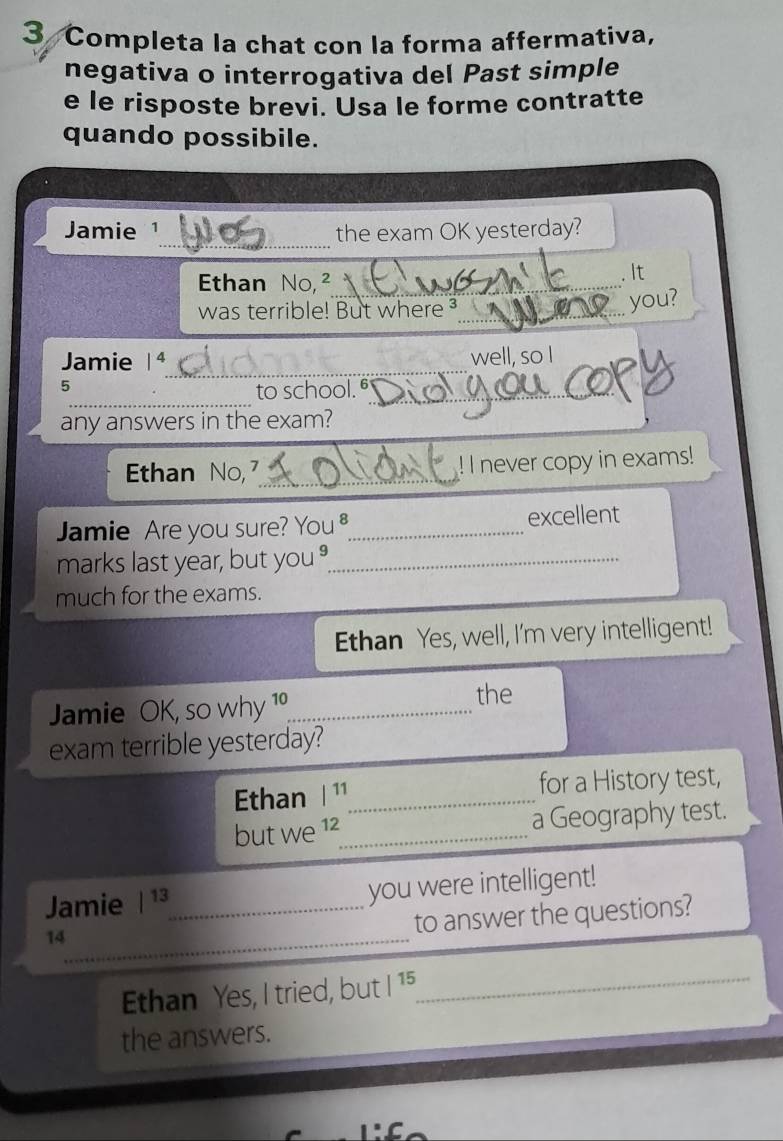 3 Completa la chat con la forma affermativa,
negativa o interrogativa del Past simple
e le risposte brevi. Usa le forme contratte
quando possibile.
Jamie 1 Was the exam OK yesterday?
Ethan No, 2 it wasn't. It
was terrible! But where 3 were you?
Jamie I 4 didn't well, so I
5 to school. 6 Did you copy
any answers in the exam?
Ethan No, 7 I didn't! I never copy in exams!
Jamie Are you sure? You 8 excellent
marks last year, but you 9
much for the exams.
Ethan Yes, well, I'm very intelligent!
Jamie OK, so why 10 the
exam terrible yesterday?
Ethan I 11 for a History test,
but we 12 a Geography test.
Jamie I 13 you were intelligent!
14 to answer the questions?
Ethan Yes, I tried, but I 15
the answers.
life